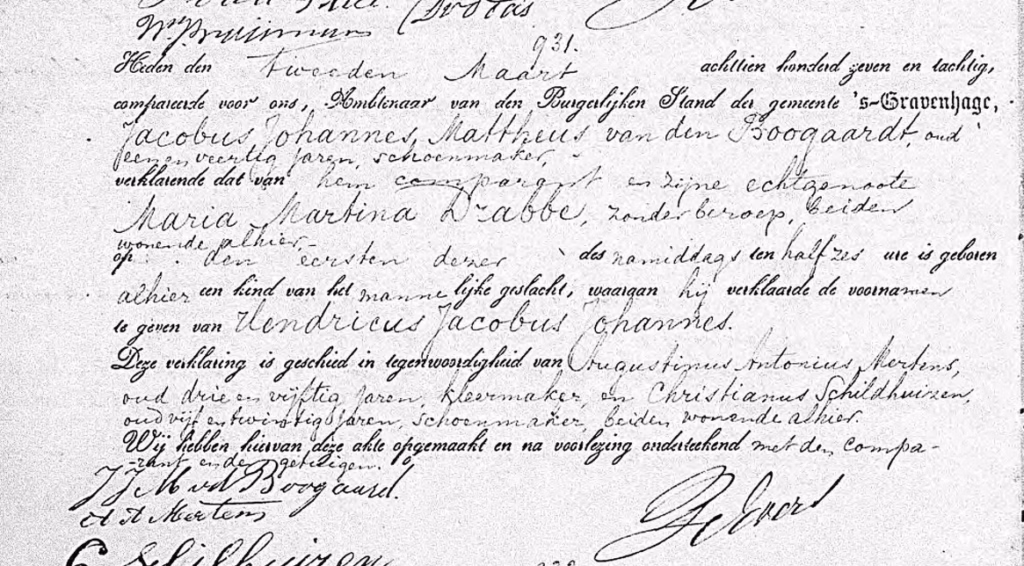 Drostas
Wm Pruijmun
931.
Heden den tweeden Maart achttien honderd zeven en tachtig,
compareerde voor ons, Ambtenaar van den Burgerlijken Stand der gemeente 's-Gravenhage,
Jacobus Johannes, Mattheus van den Boogaardt, oud
een en veertig jaren, schoenmaker,
verklarende dat van hem comparant en zijne echtgenoote
Maria Martina Drabbe, zonder beroep, beiden
wonende alhier,
op den eersten dezer des namiddags ten half zes ure is geboren
alhier een kind van het mannelijke geslacht, waaraan hij verklaarde de voornamen
te geven van Hendricus Jacobus Johannes.
Deze verklaring is geschied in tegenwoordigheid van Augustinus Antonius Mertens,
oud drie en vijftig jaren, kleermaker, en Christianus Schildhuizen,
oud vijf en twintig jaren, schoenmaker, beiden wonende alhier.
Wij hebben hiervan deze akte opgemaakt en na voorlezing onderteekend met den compa-
rant en de getuigen.
J J M vd Boogaard.
A A Mertens
C Schilhuizen